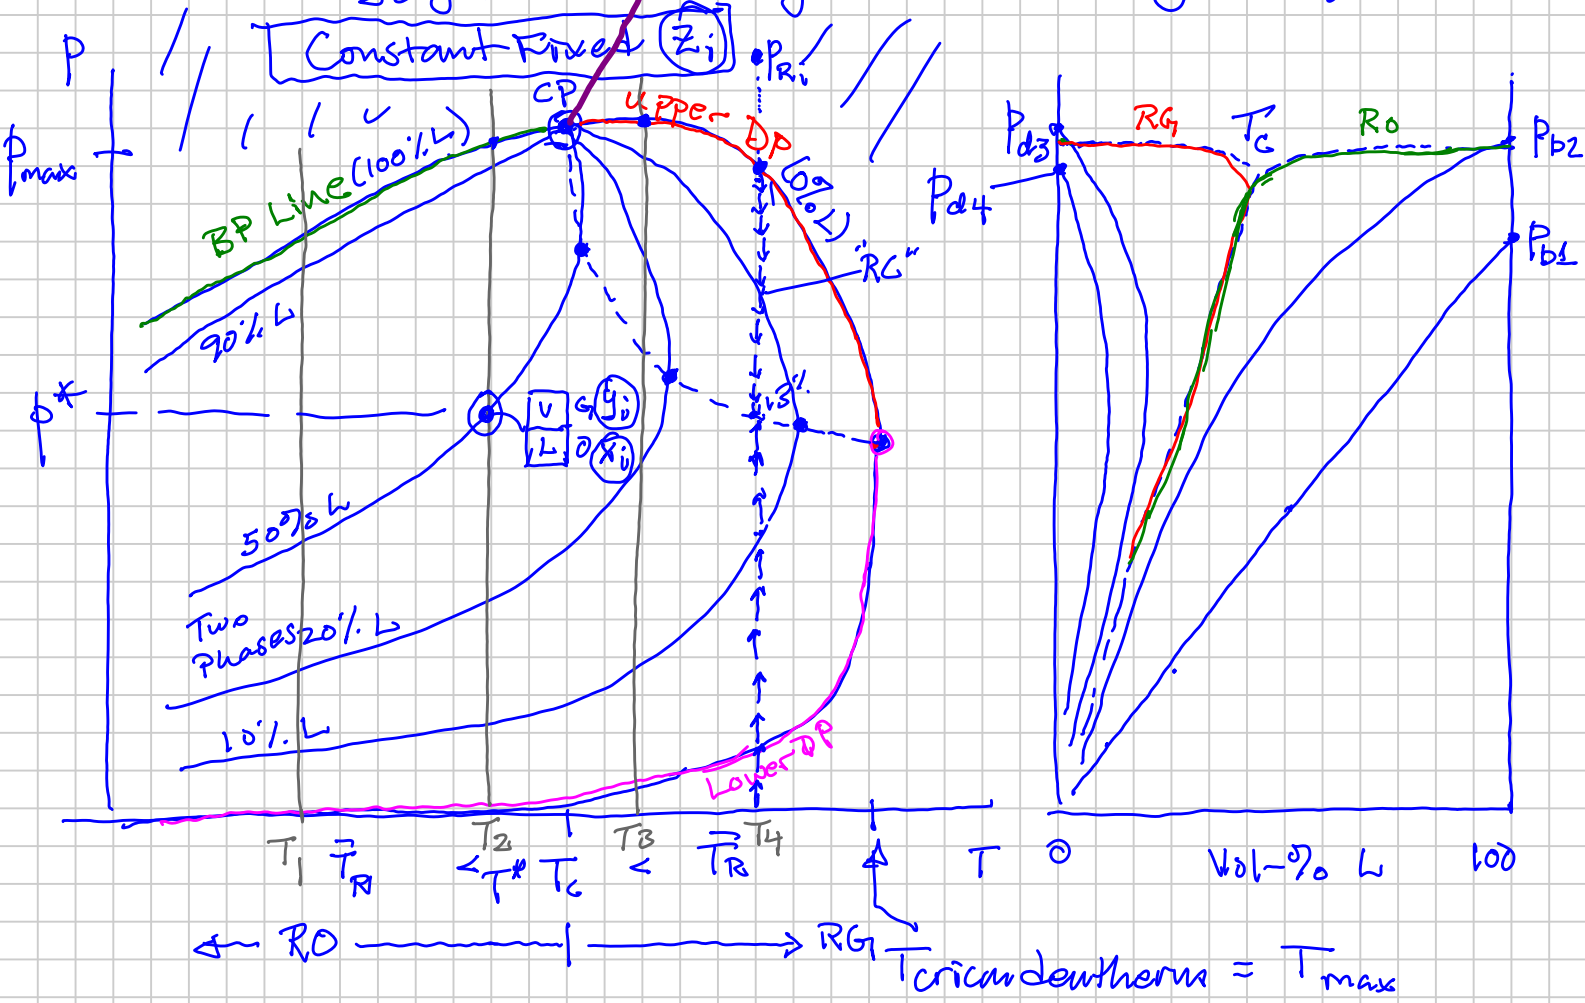 Constant Fixed Zi
P
PRi
CP
Upper DP
(0% L)
Pmax
BP Line (100% L)
90% L
"RG"
P*
V G yi
L O xi
13%
50% L
Two
Phases 20% L
10% L
Lower DP
T1 TR T2 < T* TC T3 < TR T4 T
← RO → RG
Tcricondentherm = Tmax
RG TC RO
Pd3
Pb2
Pd4
Pb1
0 Vol-% L 100